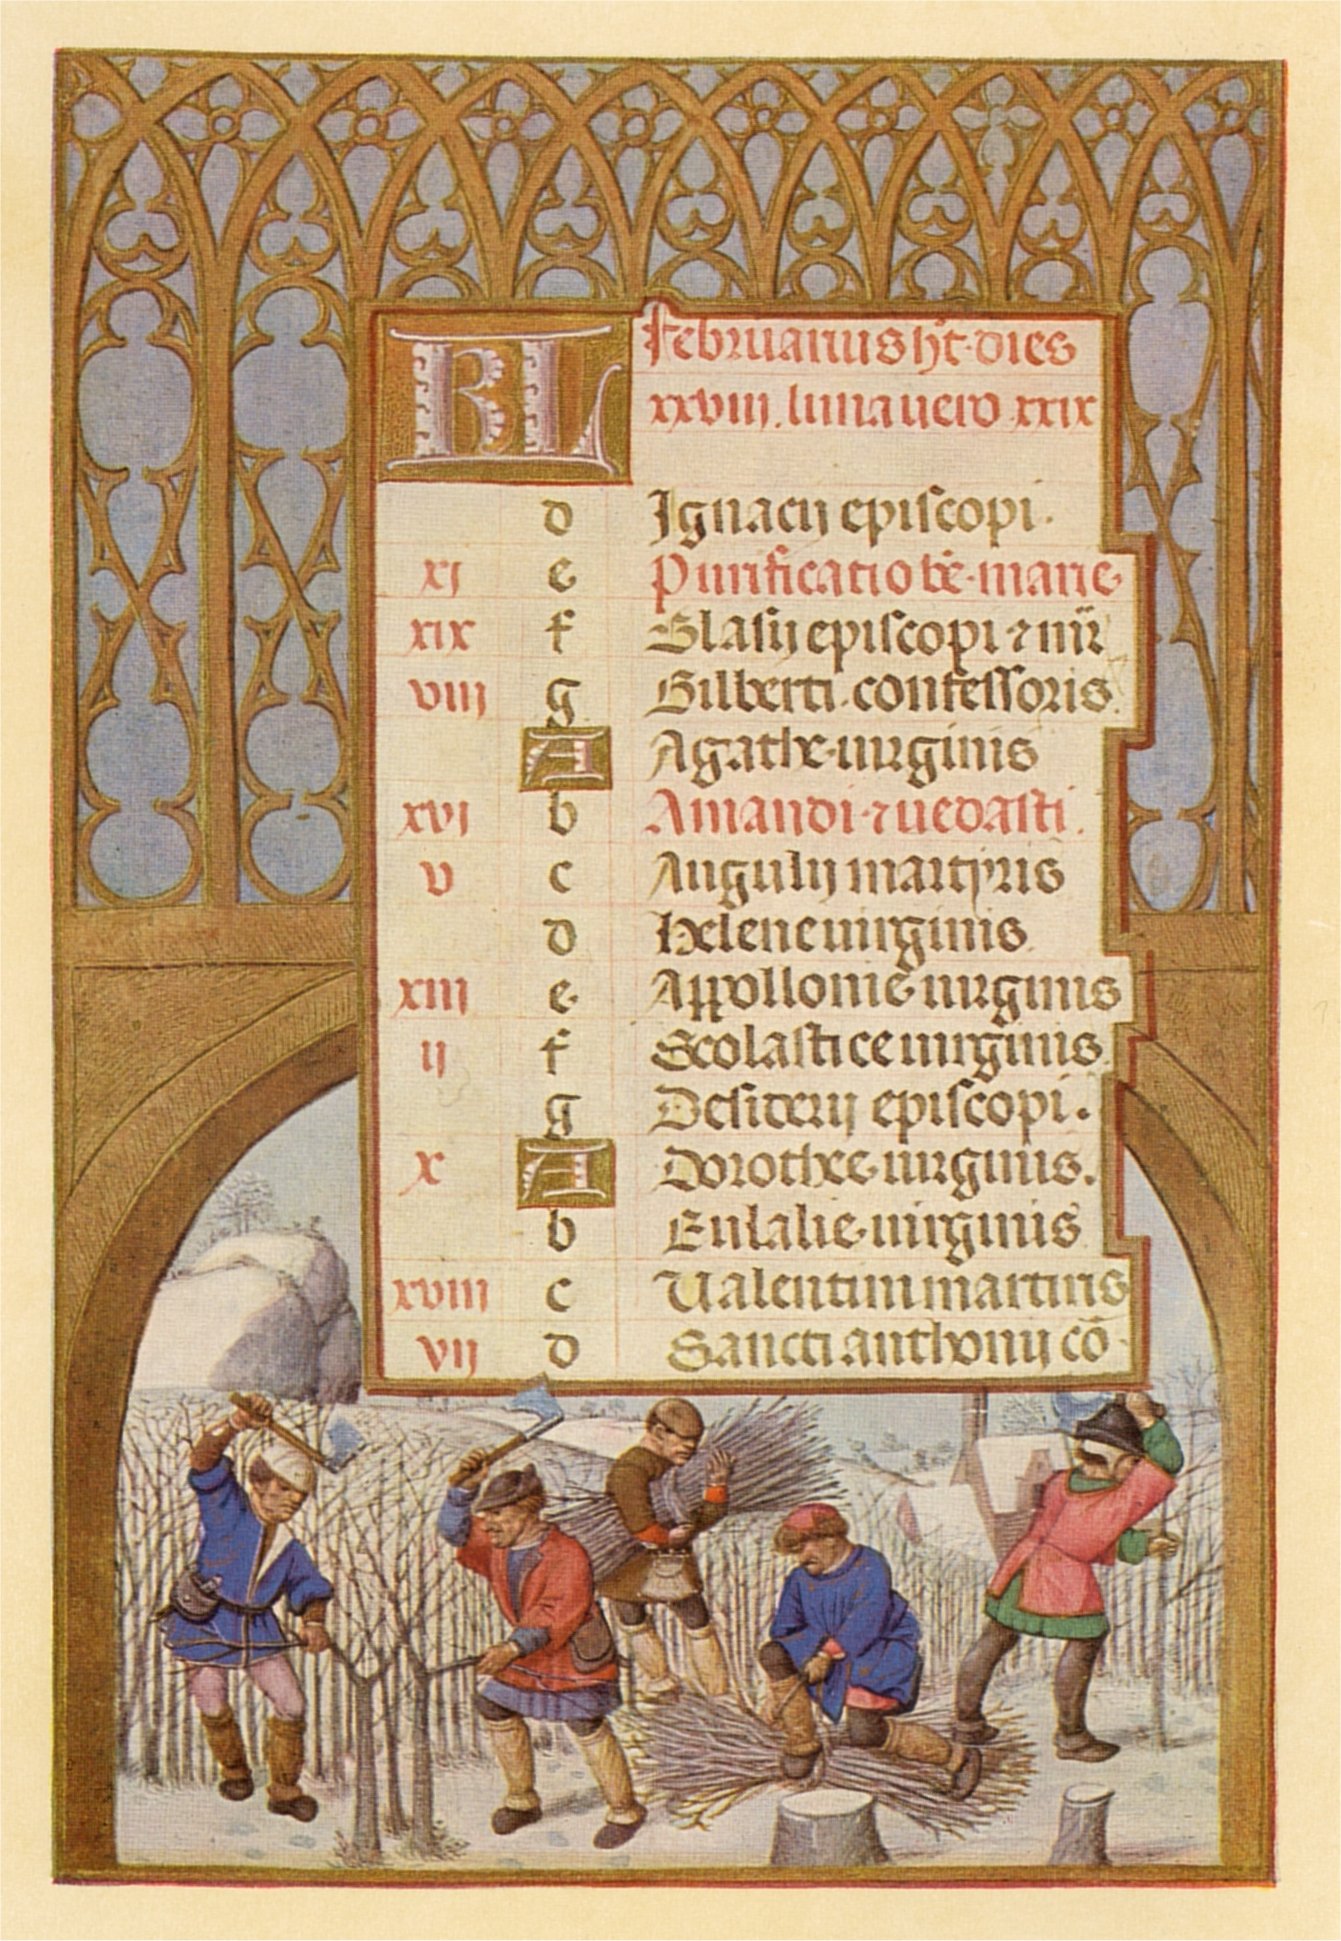 KL Februarius ht dies
xxviii. luna vero xxix
d Ignacij episcopi.
xj e Purificatio be. marie.
xix f Blasij episcopi et mr̄
viij g Gilberti. confessoris.
A Agathe. virginis
xvj b Amandi. et vedasti.
v c Augulij martyris
d Helene virginis
xiij e. Appollonie virginis
ij f Scolastice virginis.
g Desiderij episcopi.
x A Dorothee. virginis.
b Eulalie. virginis
xviij c Valentini martiris
vij d Sancti anthonij cō.